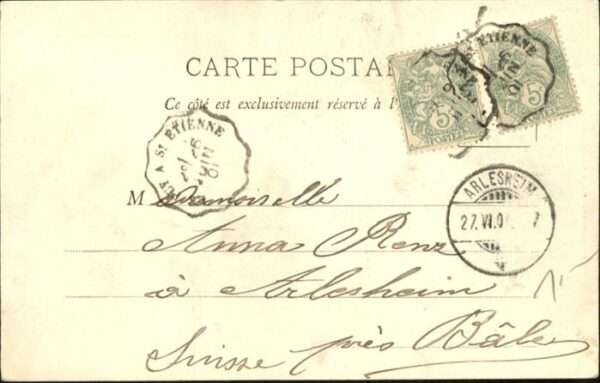 CARTE POSTA
Ce côté est exclusivement réservé à l'
ST ETIENNE
5
5
A ST ETIENNE
JUIN
ARLESHEIM
27.VI.0
Mademoiselle
Anna Renz
à Arlesheim
Suisse près Bâle